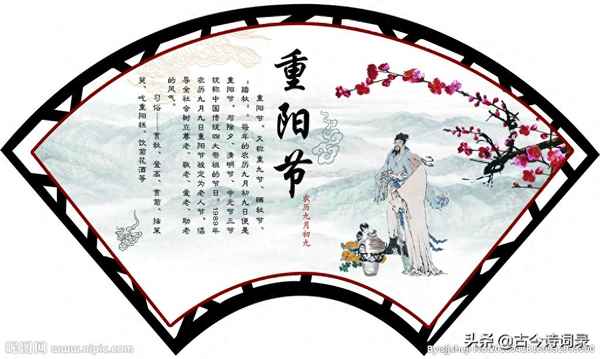 重阳节
农历九月初九
重阳节，又称重九节、晒秋节、
“踏秋”。每年的农历九月初九日便是
重阳节，与除夕、清明节、中元节三节
统称中国传统四大祭祖的节日。1989年
农历九月九日重阳节被定为老人节，倡
导全社会树立尊老、敬老、爱老、助老
的风气。
习俗——赏秋、登高、赏菊、插茱
萸、吃重阳糕、饮菊花酒等
昵图网 www.nipic.com
头条 @古今诗词录